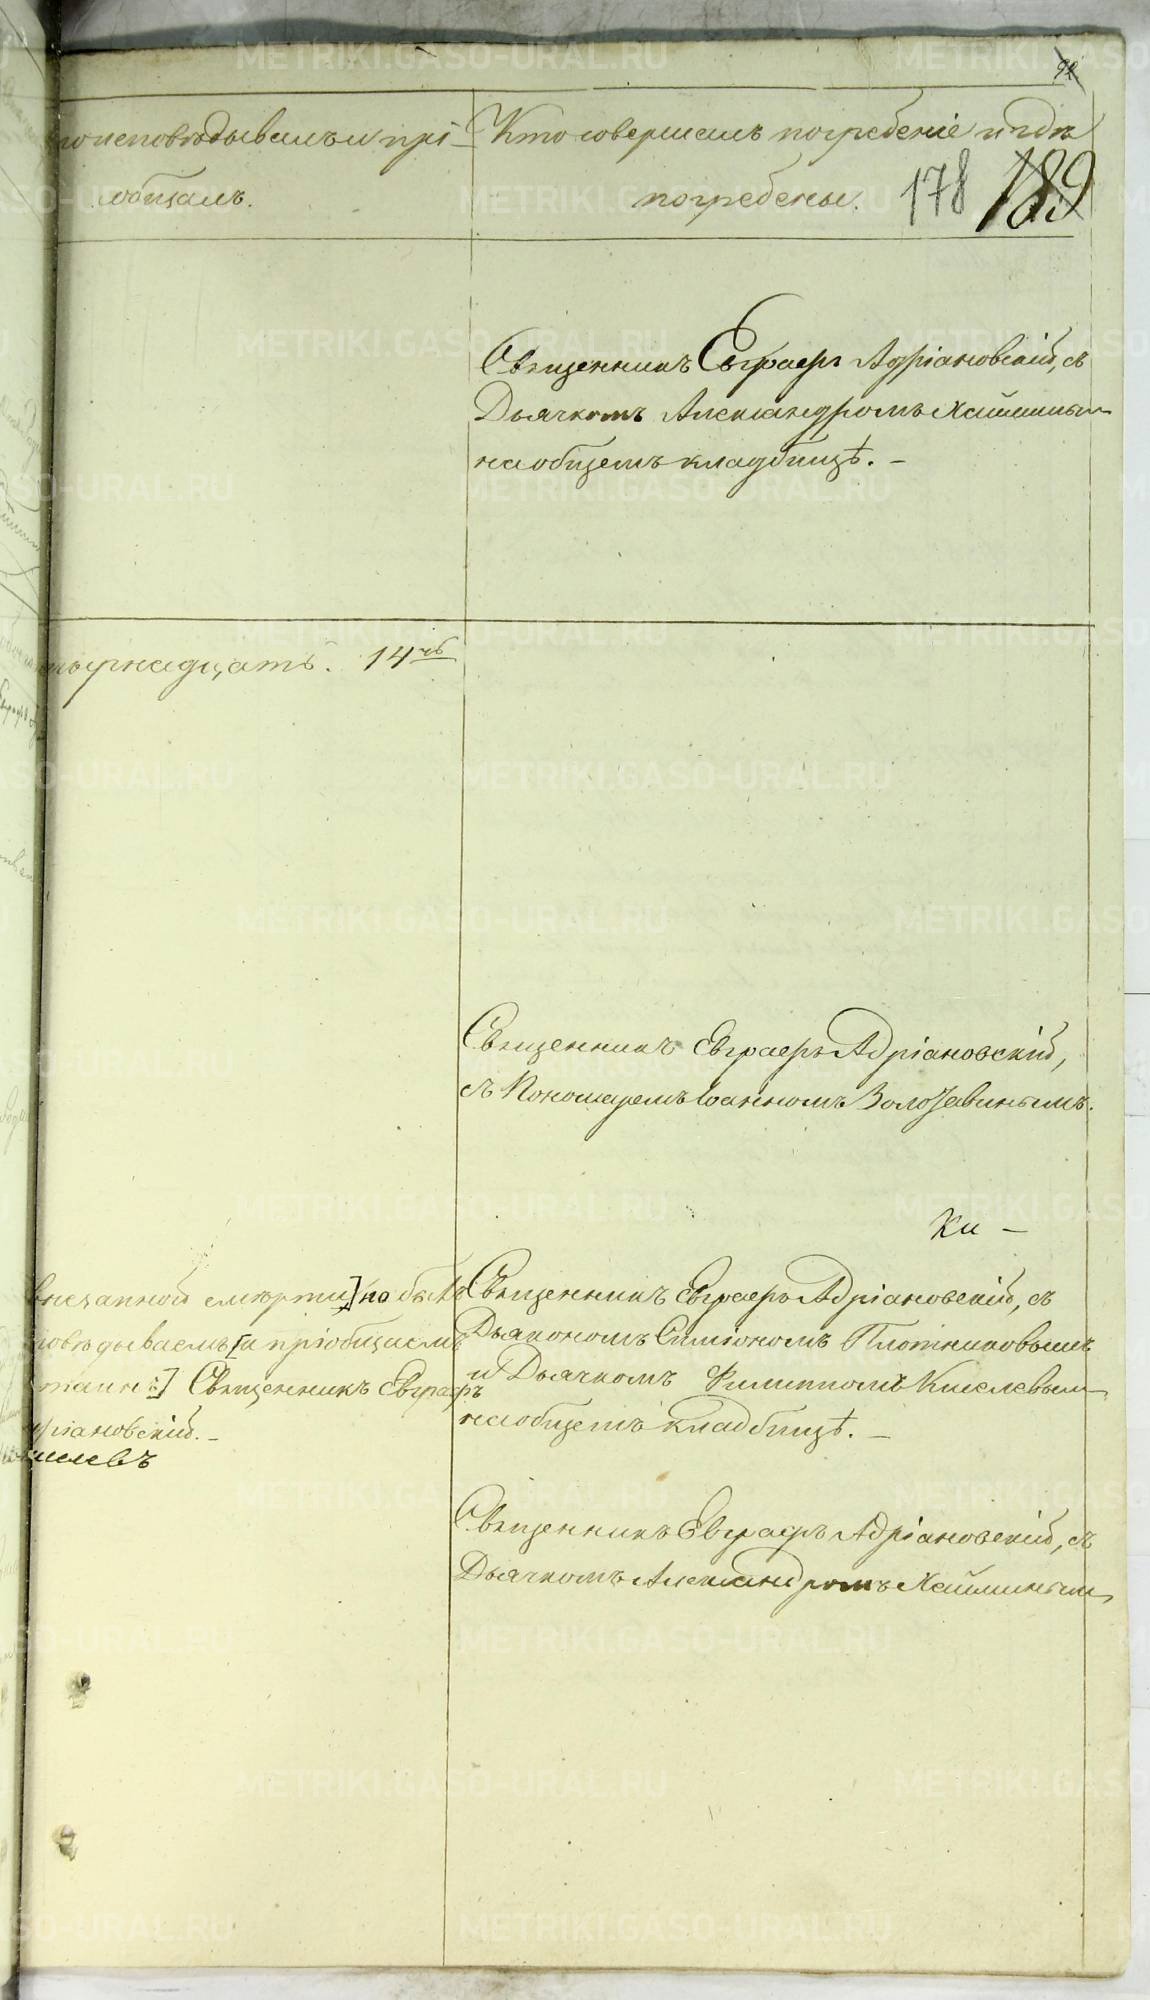 92
исповѣдывалъ и прі-
общалъ.
Кто совершалъ погребеніе и гдѣ
погребены.
178 189
Священникъ Евграфъ Адріановскій, съ
Дьячкомъ Александромъ Хайминым
на общемъ кладбищѣ. –
тырнадцать. 14
Священникъ Евграфъ Адріановскій,
съ Пономаремъ Іоанномъ Золотавинымъ.
Ки –
внезапной смерти] но был
повѣдываемъ [и пріобщаемъ
таинъ] Священникъ Евграфъ
ріановскій. –
иселевъ
Священникъ Евграфъ Адріановскій, съ
Дьякономъ Симіономъ Плотниковымъ
и Дьячкомъ Филиппомъ Киселевым
на общемъ кладбищѣ. –
Священникъ Евграфъ Адріановскій, съ
Дьячкомъ Александромъ Хайминым
METRIKI.GASO-URAL.RU